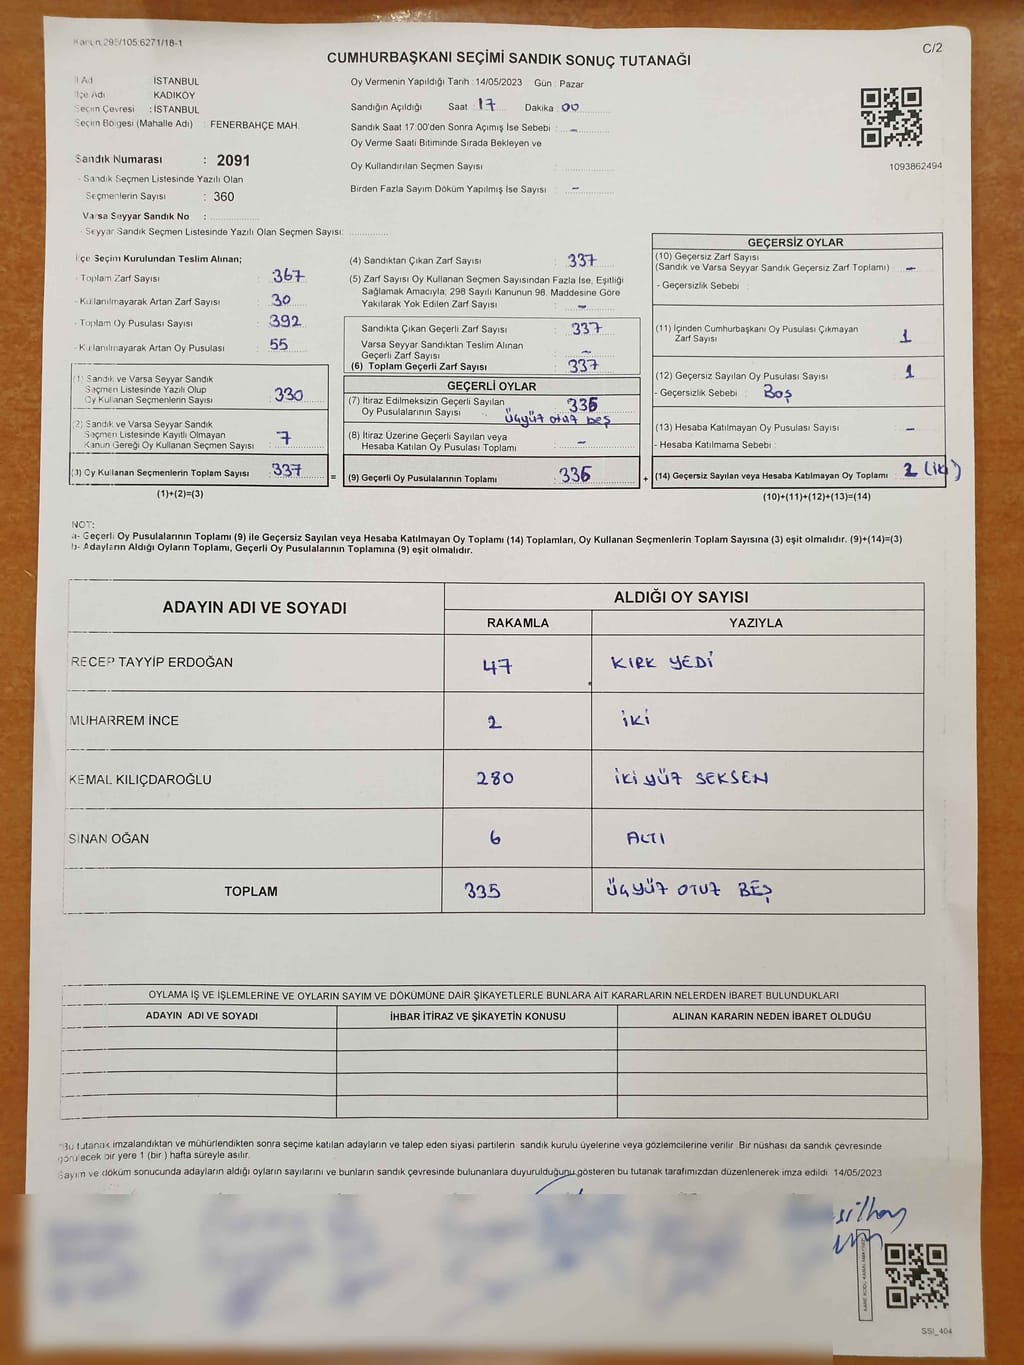 CUMHURBAŞKANI SEÇİMİ SANDIK SONUÇ TUTANAĞI
C/2
İSTANBUL
KADIKÖY
Seçim Çevresi : İSTANBUL
Seçim Bölgesi (Mahalle Adı) : FENERBAHÇE MAH.
Sandık Numarası : 2091
- Sandık Seçmen Listesinde Yazılı Olan
Seçmenlerin Sayısı : 360
Varsa Seyyar Sandık No :
- Seyyar Sandık Seçmen Listesinde Yazılı Olan Seçmen Sayısı:
Oy Vermenin Yapıldığı Tarih : 14/05/2023 Gün : Pazar
Sandığın Açıldığı Saat : 17 Dakika : 00
Sandık Saat 17:00'den Sonra Açımış İse Sebebi : -
Oy Verme Saati Bitiminde Sırada Bekleyen ve
Oy Kullandırılan Seçmen Sayısı :
Birden Fazla Sayım Döküm Yapılmış İse Sayısı : -
1093862494
İlçe Seçim Kurulundan Teslim Alınan;
- Toplam Zarf Sayısı : 367
- Kullanılmayarak Artan Zarf Sayısı : 30
- Toplam Oy Pusulası Sayısı : 392
- Kullanılmayarak Artan Oy Pusulası : 55
(1) Sandık ve Varsa Seyyar Sandık
Seçmen Listesinde Yazılı Olup
Oy Kullanan Seçmenlerin Sayısı : 330
(2) Sandık ve Varsa Seyyar Sandık
Seçmen Listesinde Kayıtlı Olmayan
Kanun Gereği Oy Kullanan Seçmen Sayısı : 7
(3) Oy Kullanan Seçmenlerin Toplam Sayısı : 337
(1)+(2)=(3)
(4) Sandıktan Çıkan Zarf Sayısı : 337
(5) Zarf Sayısı Oy Kullanan Seçmen Sayısından Fazla İse, Eşitliği
Sağlamak Amacıyla; 298 Sayılı Kanunun 98. Maddesine Göre
Yakılarak Yok Edilen Zarf Sayısı : -
Sandıkta Çıkan Geçerli Zarf Sayısı : 337
Varsa Seyyar Sandıktan Teslim Alınan
Geçerli Zarf Sayısı : -
(6) Toplam Geçerli Zarf Sayısı : 337
GEÇERLİ OYLAR
(7) İtiraz Edilmeksizin Geçerli Sayılan
Oy Pusulalarının Sayısı : 335
Üçyüz otuz beş
(8) İtiraz Üzerine Geçerli Sayılan veya
Hesaba Katılan Oy Pusulası Toplamı : -
= (9) Geçerli Oy Pusulalarının Toplamı : 335
GEÇERSİZ OYLAR
(10) Geçersiz Zarf Sayısı
(Sandık ve Varsa Seyyar Sandık Geçersiz Zarf Toplamı) : -
- Geçersizlik Sebebi :
(11) İçinden Cumhurbaşkanı Oy Pusulası Çıkmayan
Zarf Sayısı : 1
(12) Geçersiz Sayılan Oy Pusulası Sayısı : 1
- Geçersizlik Sebebi : Boş
(13) Hesaba Katılmayan Oy Pusulası Sayısı : -
- Hesaba Katılmama Sebebi :
+ (14) Geçersiz Sayılan veya Hesaba Katılmayan Oy Toplamı : 2 (iki)
(10)+(11)+(12)+(13)=(14)
NOT:
a- Geçerli Oy Pusulalarının Toplamı (9) ile Geçersiz Sayılan veya Hesaba Katılmayan Oy Toplamı (14) Toplamları, Oy Kullanan Seçmenlerin Toplam Sayısına (3) eşit olmalıdır. (9)+(14)=(3)
b- Adayların Aldığı Oyların Toplamı, Geçerli Oy Pusulalarının Toplamına (9) eşit olmalıdır.
ADAYIN ADI VE SOYADI
ALDIĞI OY SAYISI
RAKAMLA YAZIYLA
RECEP TAYYİP ERDOĞAN 47 KIRK YEDİ
MUHARREM İNCE 2 İKİ
KEMAL KILIÇDAROĞLU 280 İKİ YÜZ SEKSEN
SİNAN OĞAN 6 ALTI
TOPLAM 335 ÜÇYÜZ OTUZ BEŞ
OYLAMA İŞ VE İŞLEMLERİNE VE OYLARIN SAYIM VE DÖKÜMÜNE DAİR ŞİKAYETLERLE BUNLARA AİT KARARLARIN NELERDEN İBARET BULUNDUKLARI
ADAYIN ADI VE SOYADI İHBAR İTİRAZ VE ŞİKAYETİN KONUSU ALINAN KARARIN NEDEN İBARET OLDUĞU
"Bu tutanak imzalandıktan ve mühürlendikten sonra seçime katılan adayların ve talep eden siyasi partilerin sandık kurulu üyelerine veya gözlemcilerine verilir. Bir nüshası da sandık çevresinde
görülecek bir yere 1 (bir) hafta süreyle asılır.
Sayım ve döküm sonucunda adayların aldığı oyların sayılarını ve bunların sandık çevresinde bulunanlara duyurulduğunu gösteren bu tutanak tarafımızdan düzenlenerek imza edildi. 14/05/2023
SSI_404